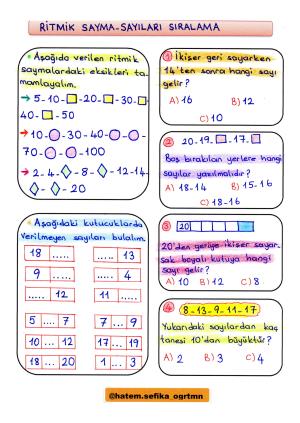 RİTMİK SAYMA-SAYILARI SIRALAMA
Aşağıda verilen ritmik
saymalardaki eksikleri ta-
mamlayalım.
5-10-□-20-□-30-□
40-□-50
10-○-30-40-○-○-
70-○-○-100
2-4-◇-8-◇-12-14-
◇-◇-20
Aşağıdaki kutucuklarda
verilmeyen sayıları bulalım.
18 .....
..... 13
9 .....
..... 4
..... 12
11 .....
5 .... 7
7 .... 9
10 ... 12
17 ... 19
18 ... 20
1 ... 3
1 İkişer geri sayarken
14'ten sonra hangi sayı
gelir?
A) 16 B) 12
C) 10
2 20-19-□-17-□
Boş bırakılan yerlere hangi
sayılar yazılmalıdır?
A) 18-14 B) 15-16
C) 18-16
3 20
20'den geriye ikişer sayar-
sak boyalı kutuya hangi
sayı gelir?
A) 10 B) 12 C) 8
4 8-13-9-11-17
Yukarıdaki sayılardan kaç
tanesi 10'dan büyüktür?
A) 2 B) 3 C) 4
@hatem.sefika_ogrtmn